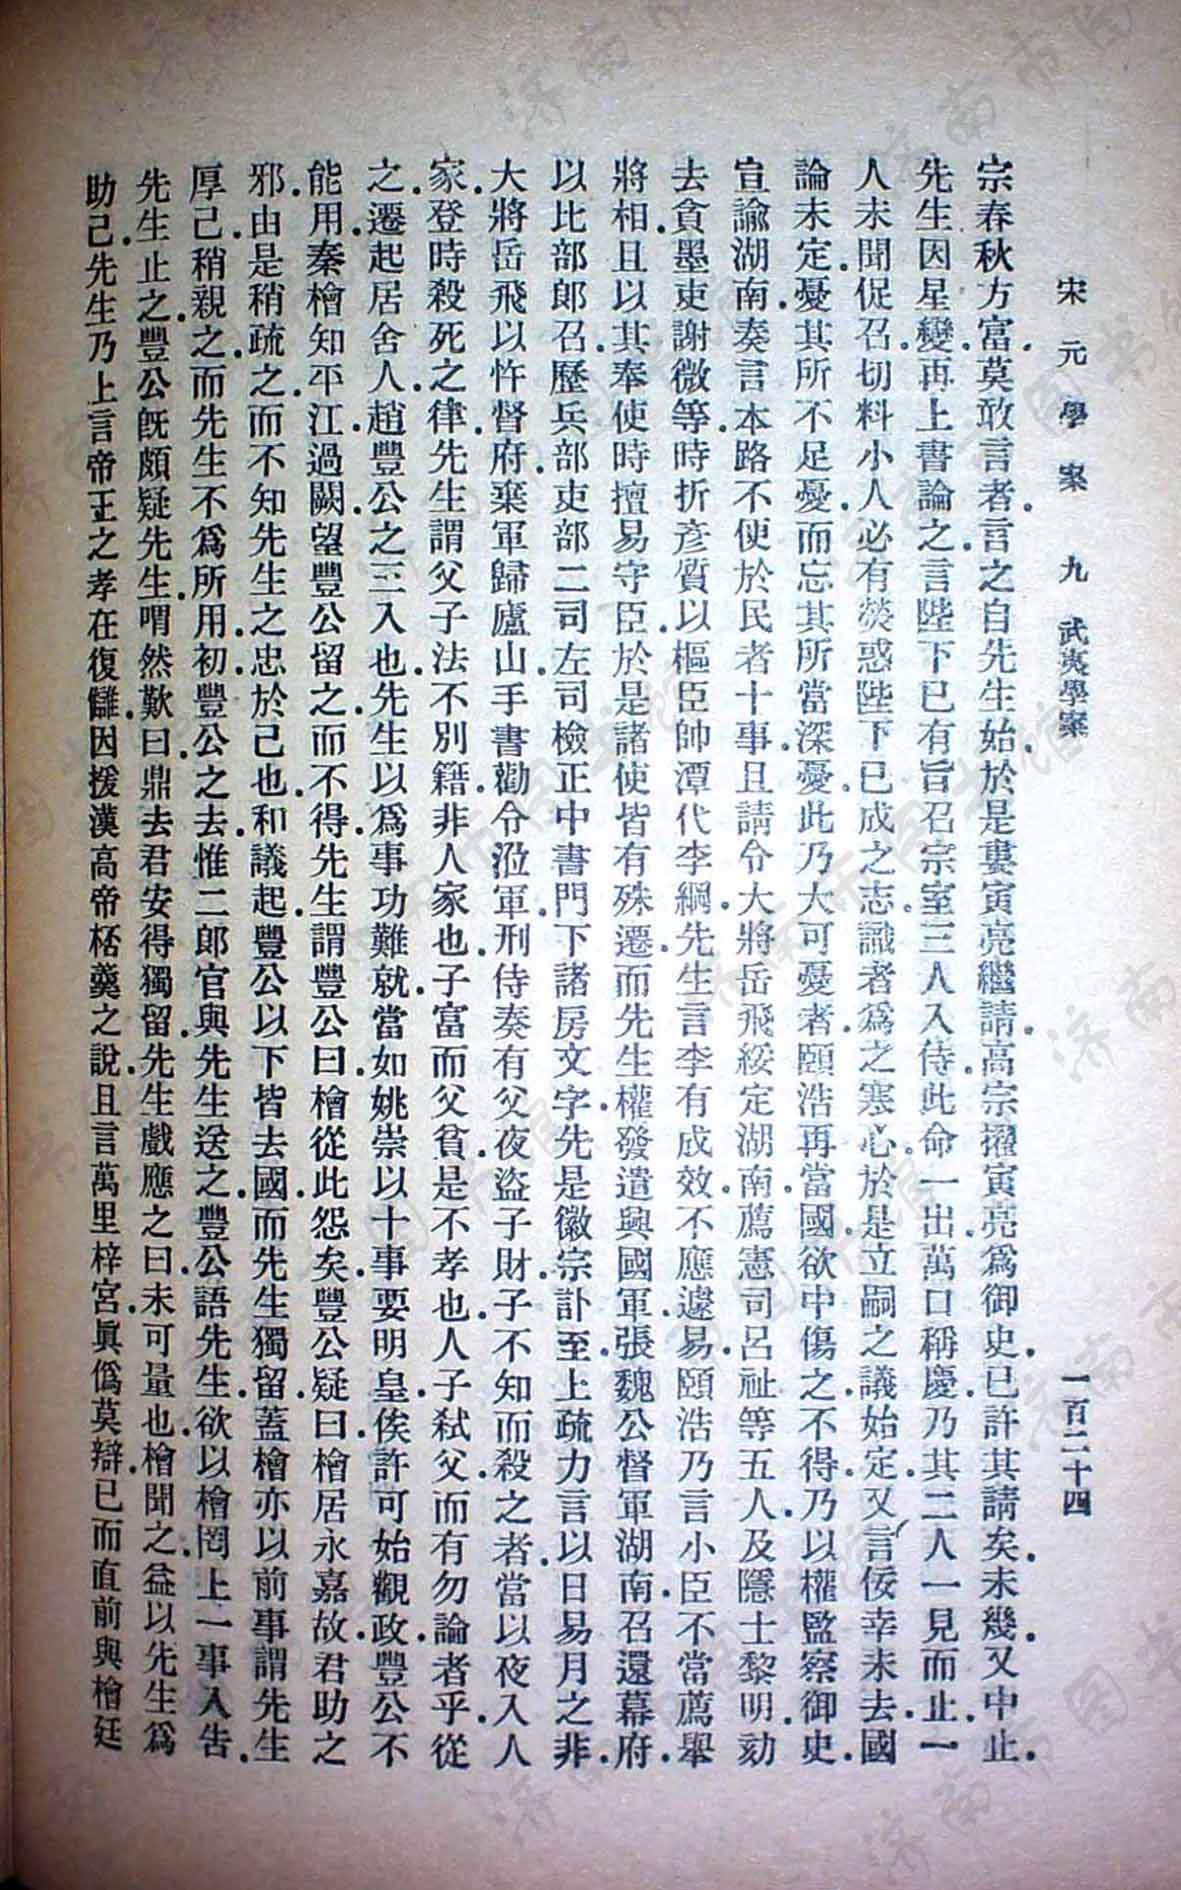 宋元學案　九　武夷學案　一百二十四
宗春秋方富莫敢言者言之自先生始於是婁寅亮繼請高宗擢寅亮爲御史已許其請矣未幾又中止
先生因星變再上書論之言陛下已有旨召宗室三人入侍此命一出萬口稱慶乃其二人一見而止一
人未聞促召切料小人必有熒惑陛下已成之志識者爲之寒心於是立嗣之議始定又言佞幸未去國
論未定憂其所不足憂而忘其所當深憂此乃大可憂者頤浩再當國欲中傷之不得乃以權監察御史
宣諭湖南奏言本路不便於民者十事且請令大將岳飛綏定湖南薦憲司呂祉等五人及隱士黎明劾
去貪墨吏謝微等時折彥質以樞臣帥潭代李綱先生言李有成效不應遽易頤浩乃言小臣不當薦舉
將相且以其奉使時擅易守臣於是諸使皆有殊遷而先生權發遣興國軍張魏公督軍湖南召還幕府
以比部郎召歷兵部吏部二司左司檢正中書門下諸房文字先是徽宗訃至上疏力言以日易月之非
大將岳飛以忤督府棄軍歸廬山手書勸令涖軍刑侍奏有父夜盜子財子不知而殺之者當以夜入人
家登時殺死之律先生謂父子法不別籍非人家也子富而父貧是不孝也人子弒父而有勿論者乎從
之遷起居舍人趙豐公之三入也先生以爲事功難就當如姚崇以十事要明皇俟許可始觀政豐公不
能用秦檜知平江過闕望豐公留之而不得先生謂豐公曰檜從此怨矣豐公疑曰檜居永嘉故君助之
邪由是稍疏之而不知先生之忠於己也和議起豐公以下皆去國而先生獨留蓋檜亦以前事謂先生
厚己稍親之而先生不爲所用初豐公之去惟二郎官與先生送之豐公語先生欲以檜罔上一事入告
先生止之豐公旣頗疑先生喟然歎曰鼎去君安得獨留先生戲應之曰未可量也檜聞之益以先生爲
助己先生乃上言帝王之孝在復讎因援漢高帝桮羹之說且言萬里梓宮眞僞莫辯已而直前與檜廷